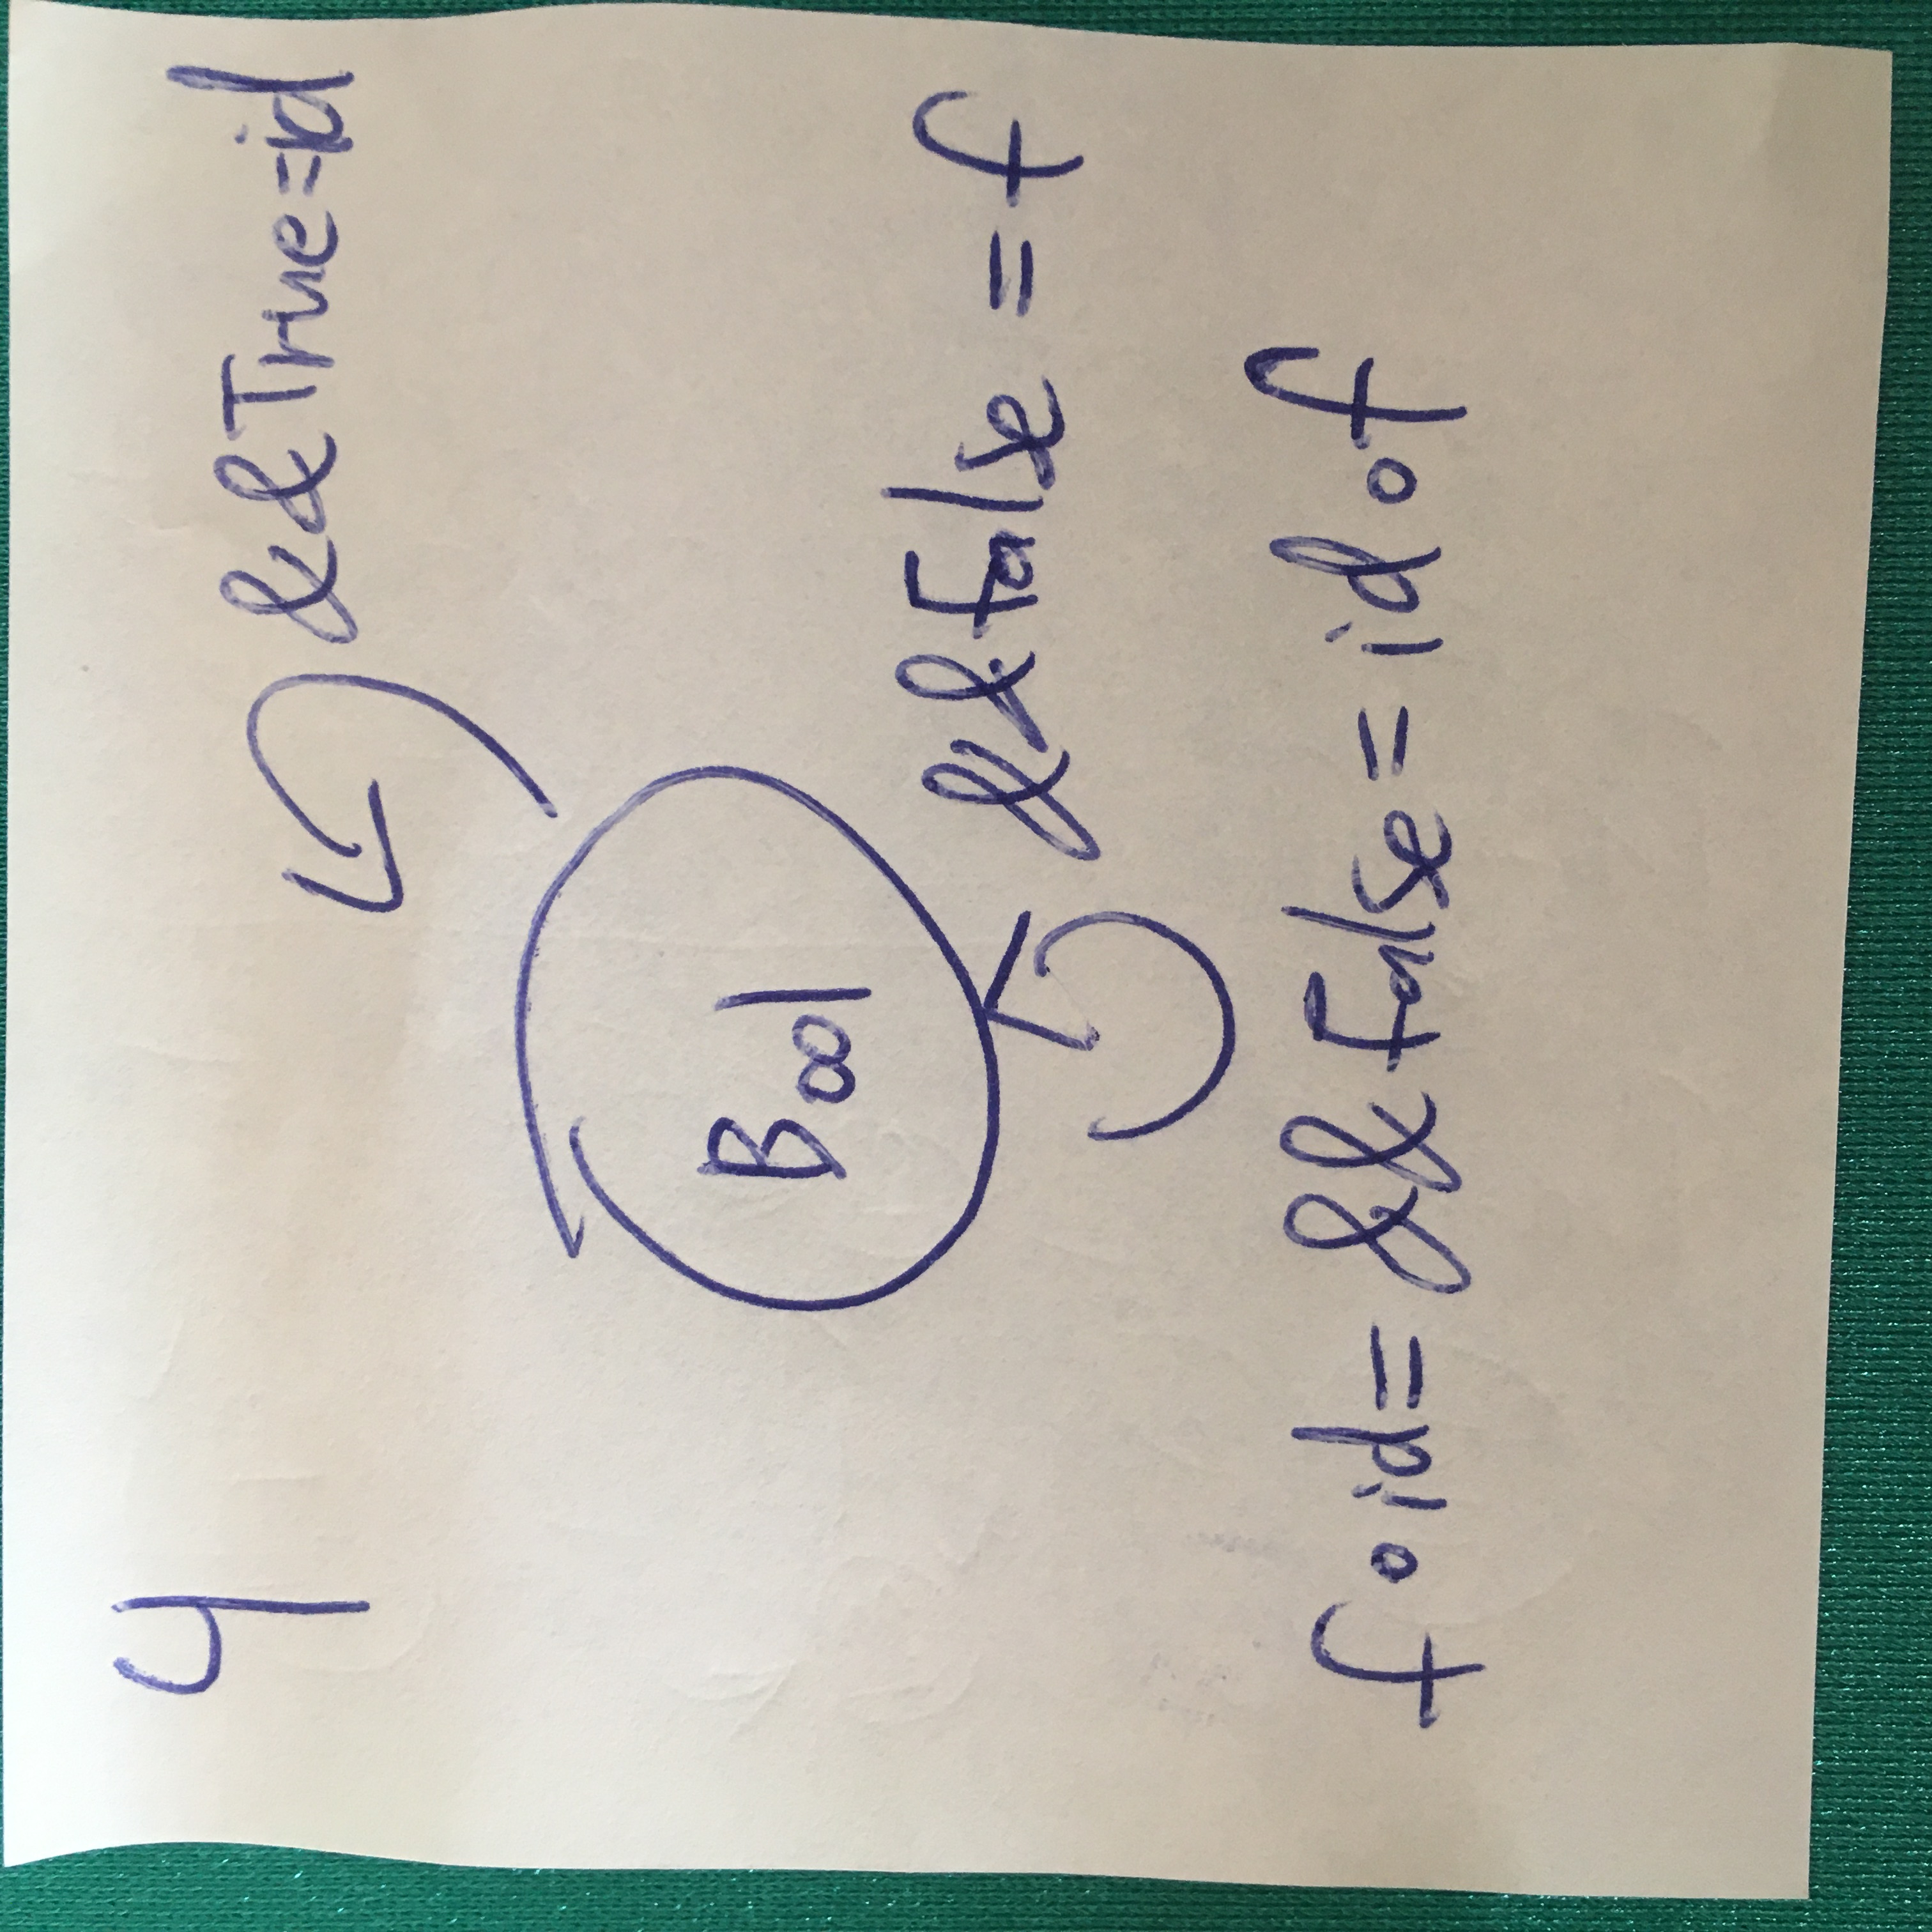 4
&&True=id
Bool
&&False = f
f∘id= &&False= id∘f